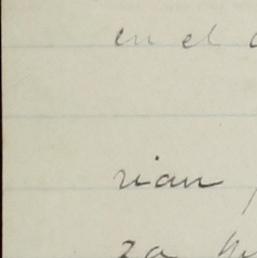 en el
rian
za